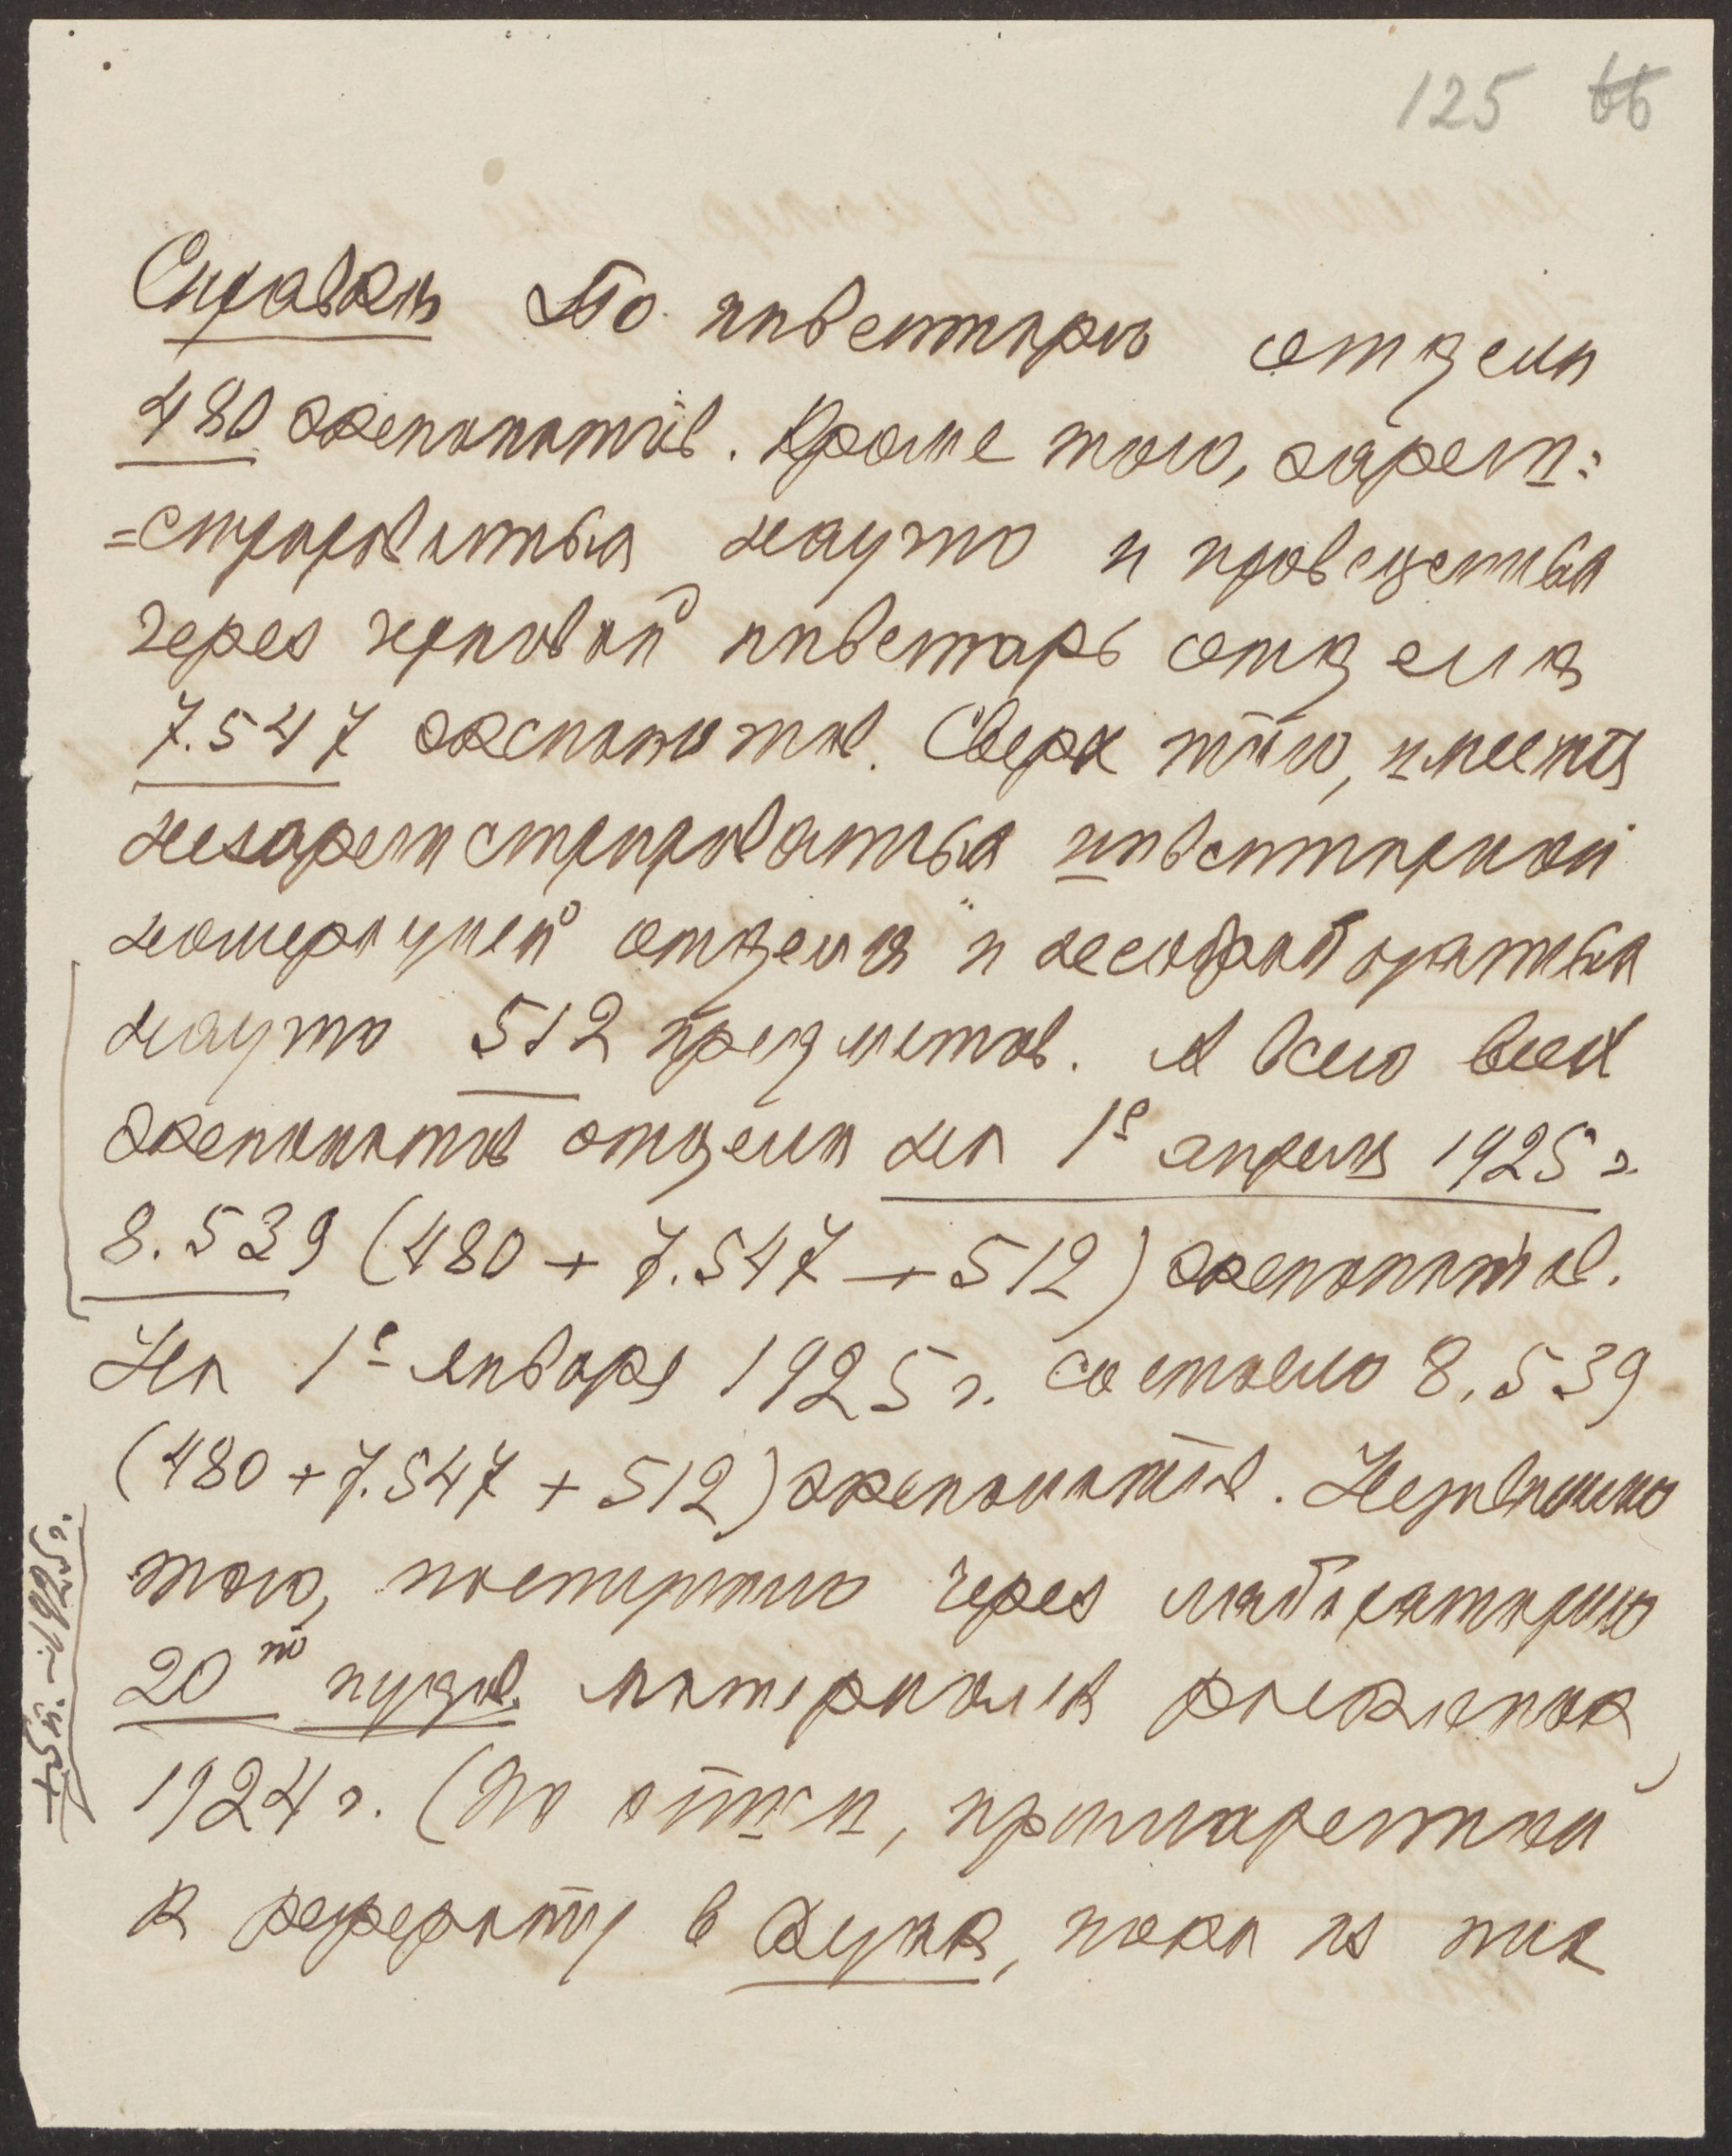 125 66
Справка По инвентарю отдела
480 экспонатов. Кроме того, зареги=
=стрировано научно и проведено
через черновой инвентарь отдела
7.547 экспонатов. Сверх того, имеется
незарегистрированных инвентарной
номерацией отдела и необработанных
научно 512 предметов. А всего всех
экспонатов отдела на 1е апреля 1925 г.
8.539 (480 + 7.547 + 512) экспонатов.
На 1е января 1925 г. состояло 8.539
(480 + 7.547 + 512) экспонатов. Независимо
того, поступило через лабораторию
20то пудов материала раскопок
1924 г. (По описи,
к реферату в, пока из них
1925 г.